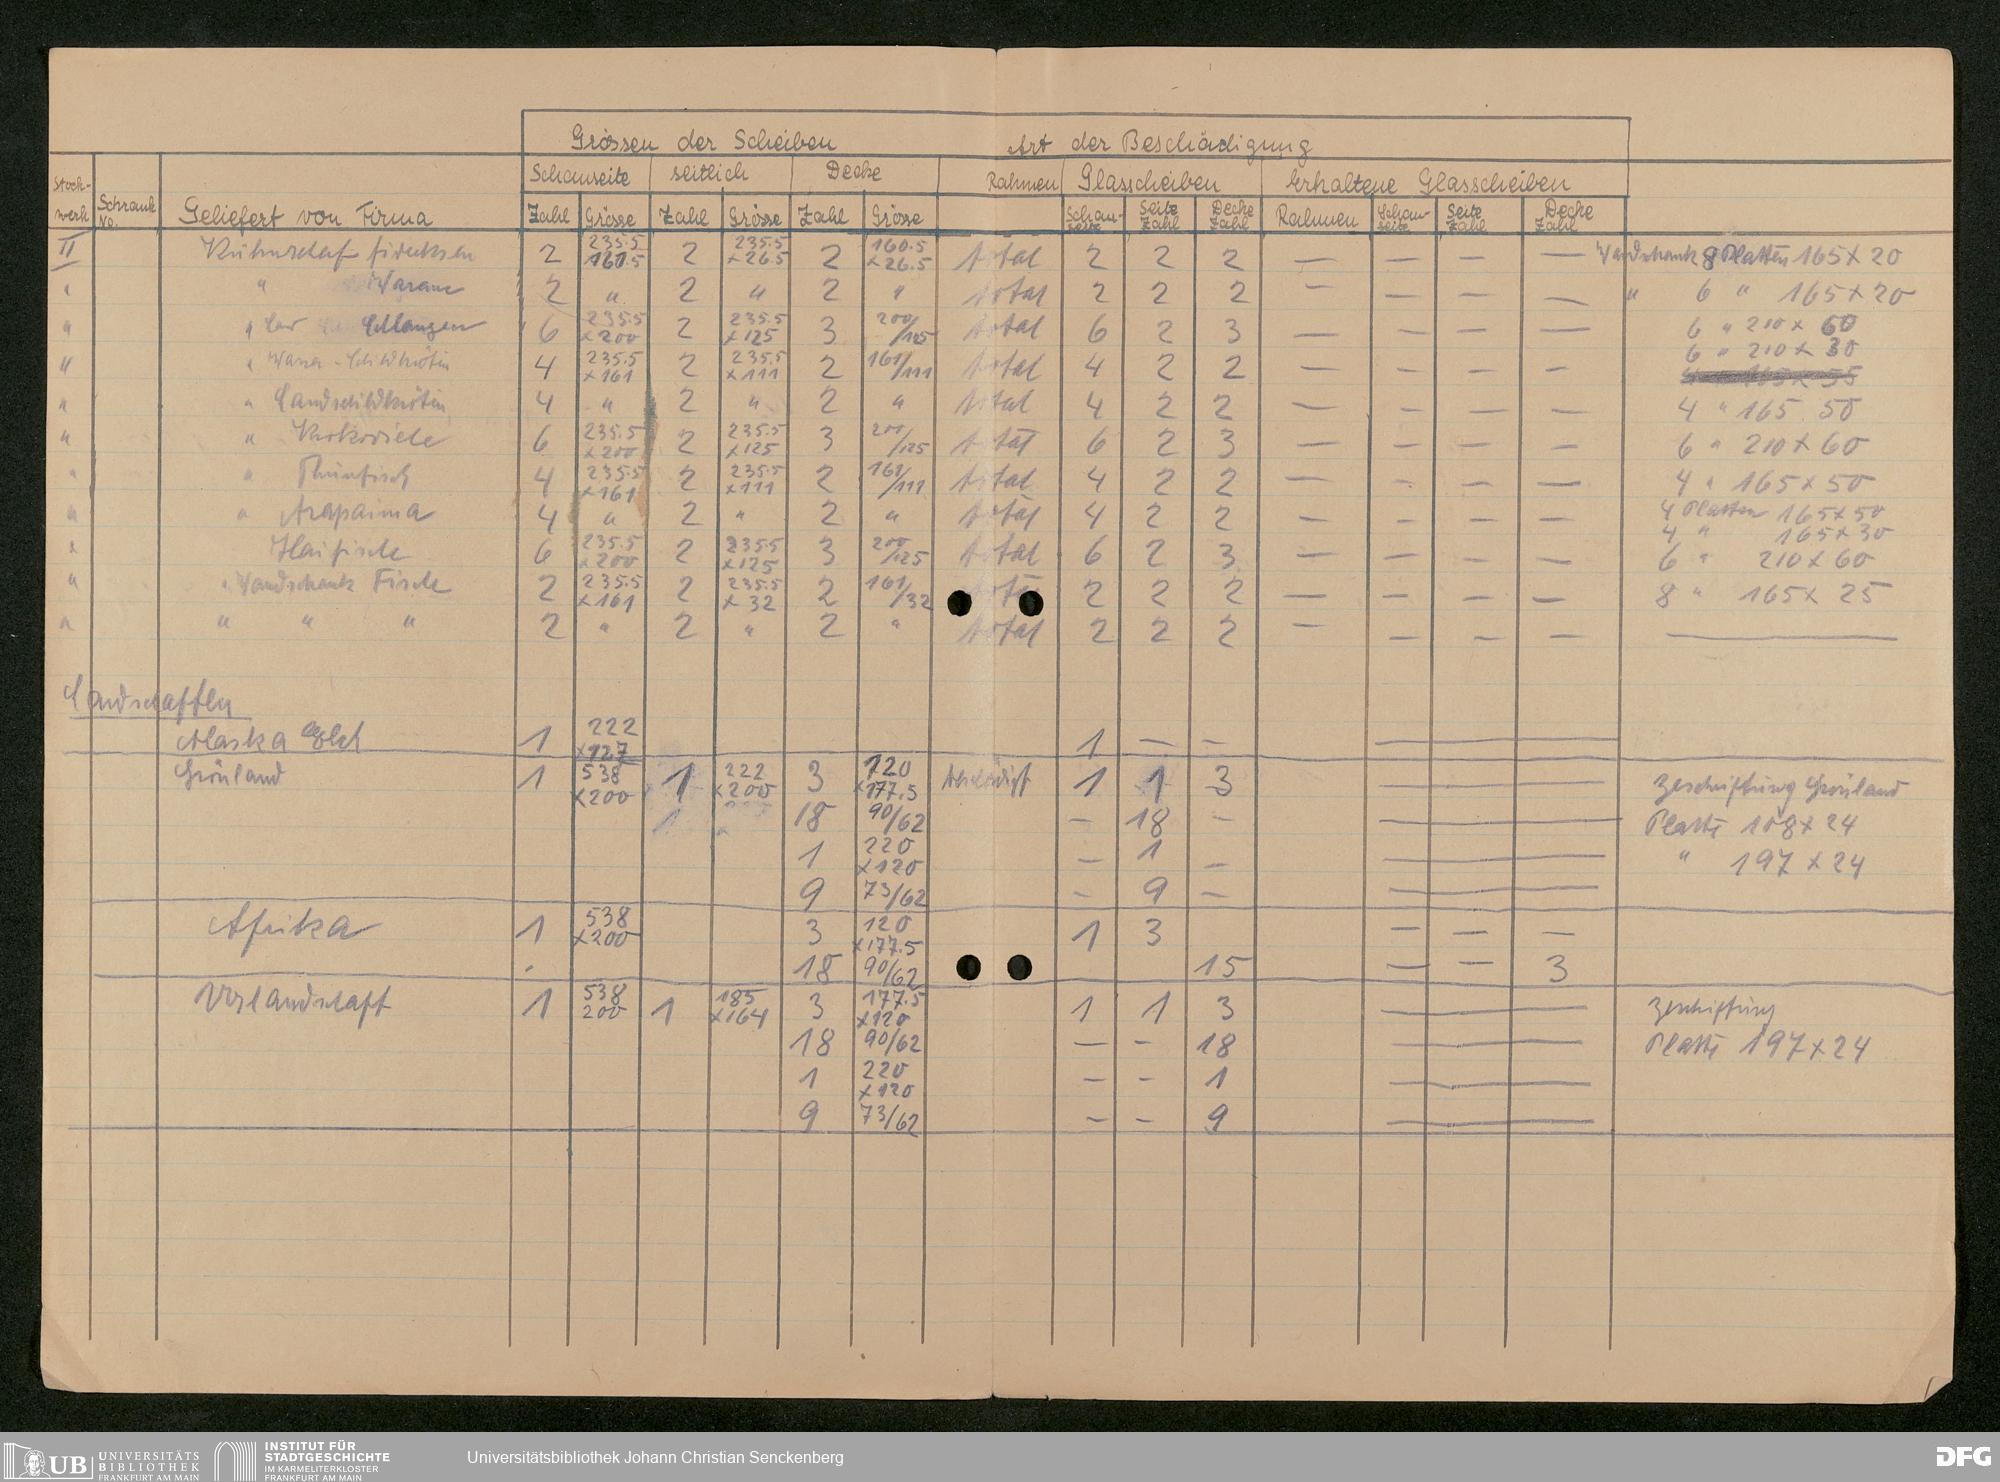 Grössen der Scheiben Art der Beschädigung
Schauseite seitlich Decke Rahmen Glasscheiben Erhaltene Glasscheiben
Stock-werk Schrank No. Geliefert von Firma Zahl Grösse Zahl Grösse Zahl Grösse Schau-seite Seite Zahl Decke Zahl Rahmen Schau-seite Seite Zahl Decke Zahl
II Kühnscherf 2 235.5 160.5 2 235.5 × 26.5 2 160.5 × 26.5 total 2 2 2 — — — — Wandschrank 8 Platten 165 × 20
" " Warane 2 " 2 " 2 " total 2 2 2 — — — — " 6 " 165 × 20
" " Schlangen 6 235.5 × 200 2 235.5 × 125 3 200/125 total 6 2 3 — — — — 6 " 210 × 60
6 " 210 × 30
" " Wasser-Schildkröten 4 235.5 × 161 2 235.5 × 111 2 161/111 total 4 2 2 — — — —
" " Landschildkröten 4 " 2 " 2 " total 4 2 2 — — — — 4 " 165 50
" " Krokodile 6 235.5 × 200 2 235.5 × 125 3 200/125 total 6 2 3 — — — — 6 " 210 × 60
" " Thunfisch 4 235.5 × 161 2 235.5 × 111 2 161/111 total 4 2 2 — — — — 4 " 165 × 50
" " Arapaima 4 " 2 " 2 " total 4 2 2 — — — — 4 Platten 165 × 50
4 " 165 × 30
" Haifische 6 235.5 × 200 2 235.5 × 125 3 200/125 total 6 2 3 — — — — 6 " 210 × 60
" " Wandschrank Fische 2 235.5 × 161 2 235.5 × 32 2 161/32 2 2 2 — — — — 8 " 165 × 25
" " " " 2 " 2 " 2 " total 2 2 2 — — — — —
Landschaften
Alaska Elch 1 222 × 127 1 — — —
Grönland 1 538 × 200 1 222 × 200 3 120 × 177.5 beschädigt 1 1 3 — Beschriftung Grönland
1 " 18 90/62 — 18 — — Platte 108 × 24
1 220 × 120 — 1 — — " 197 × 24
9 73/62 — 9 — —
Afrika 1 538 × 200 3 120 × 177.5 1 3 — — —
18 90/62 15 — — 3
Vorlandschaft 1 538 200 1 185 × 164 3 177.5 × 120 1 1 3 — Beschriftung
18 90/62 — — 18 — Platte 197 × 24
1 220 × 120 — — 1 —
9 73/62 — — 9 —
UB UNIVERSITÄTS
BIBLIOTHEK
FRANKFURT AM MAIN
INSTITUT FÜR
STADTGESCHICHTE
IM KARMELITERKLOSTER
FRANKFURT AM MAIN
Universitätsbibliothek Johann Christian Senckenberg
DFG